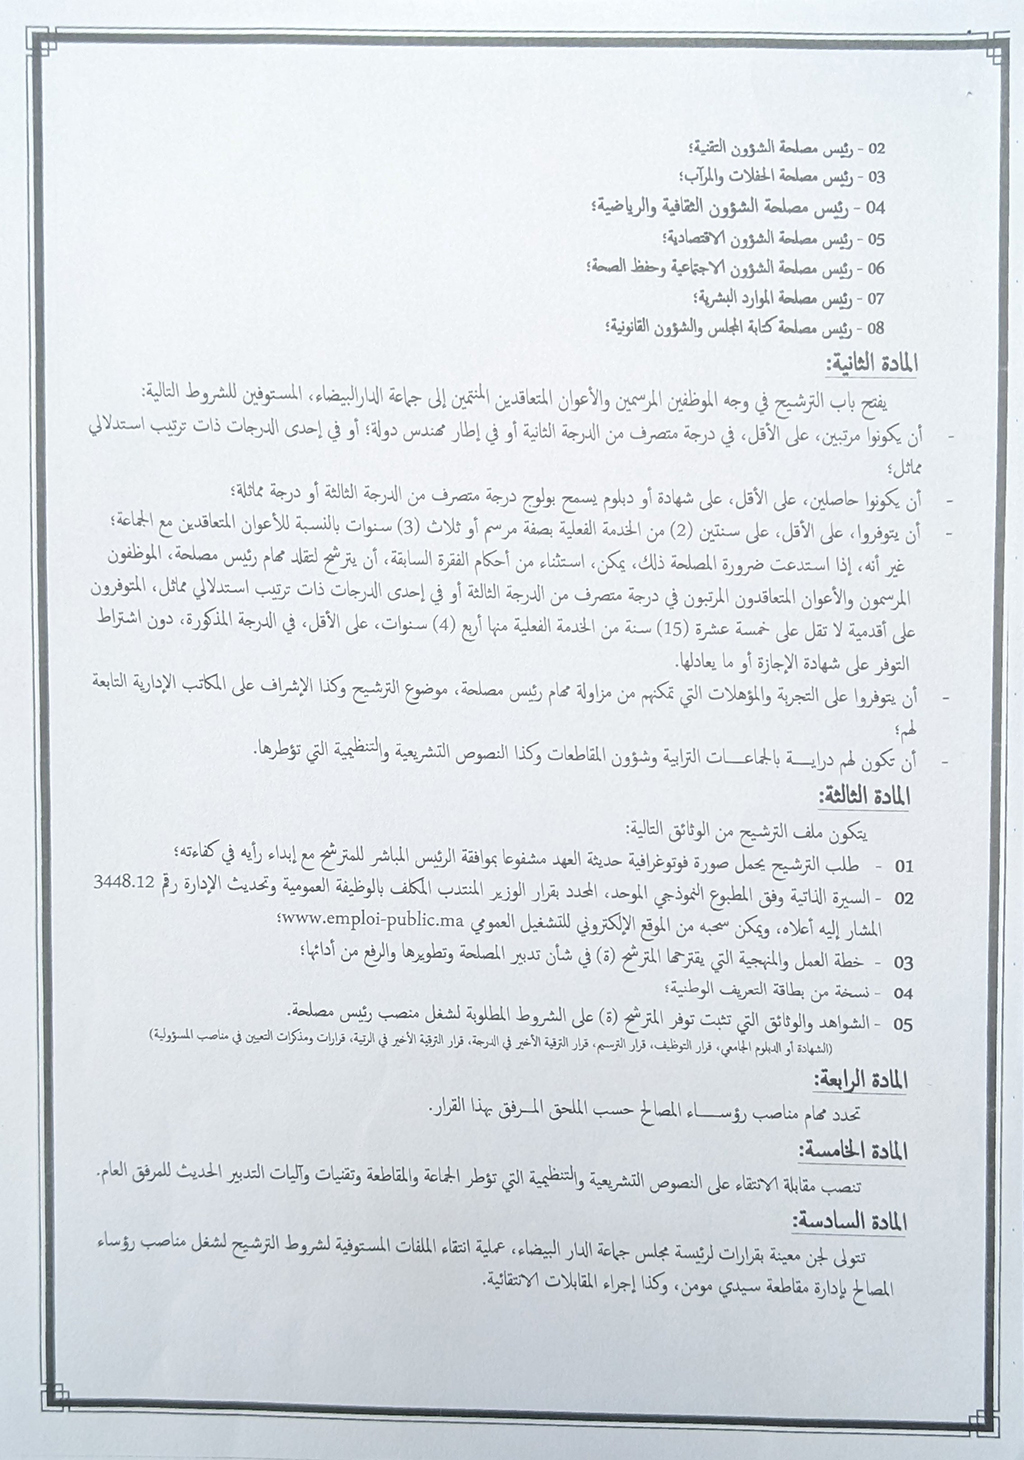 02 - رئيس مصلحة الشؤون التقنية؛
03 - رئيس مصلحة الحفلات والمرآب؛
04 - رئيس مصلحة الشؤون الثقافية والرياضية؛
05 - رئيس مصلحة الشؤون الاقتصادية؛
06 - رئيس مصلحة الشؤون الاجتماعية وحفظ الصحة؛
07 - رئيس مصلحة الموارد البشرية؛
08 - رئيس مصلحة كتابة المجلس والشؤون القانونية؛
المادة الثانية:
يفتح باب الترشيح في وجه الموظفين المرسمين والأعوان المتعاقدين المنتمين إلى جماعة الدارالبيضاء، المستوفين للشروط التالية:
- أن يكونوا مرتبين، على الأقل، في درجة متصرف من الدرجة الثانية أو في إطار مهندس دولة؛ أو في إحدى الدرجات ذات ترتيب استدلالي
مماثل؛
- أن يكونوا حاصلين، على الأقل، على شهادة أو دبلوم يسمح بولوج درجة متصرف من الدرجة الثالثة أو درجة مماثلة؛
- أن يتوفروا، على الأقل، على سنتين (2) من الخدمة الفعلية بصفة مرسم أو ثلاث (3) سنوات بالنسبة للأعوان المتعاقدين مع الجماعة؛
غير أنه، إذا استدعت ضرورة المصلحة ذلك، يمكن، استثناء من أحكام الفقرة السابقة، أن يترشح لتقلد مهام رئيس مصلحة، الموظفون
المرسمون والأعوان المتعاقدون المرتبون في درجة متصرف من الدرجة الثالثة أو في إحدى الدرجات ذات ترتيب استدلالي مماثل، المتوفرون
على أقدمية لا تقل على خمسة عشرة (15) سنة من الخدمة الفعلية منها أربع (4) سنوات، على الأقل، في الدرجة المذكورة، دون اشتراط
التوفر على شهادة الإجازة أو ما يعادلها.
- أن يتوفروا على التجربة والمؤهلات التي تمكنهم من مزاولة مهام رئيس مصلحة، موضوع الترشيح وكذا الإشراف على المكاتب الإدارية التابعة
لهم؛
- أن تكون لهم درايـــة بالجماعـــات الترابية وشؤون المقاطعات وكذا النصوص التشريعية والتنظيمية التي تؤطرها.
المادة الثالثة:
يتكون ملف الترشيح من الوثائق التالية:
01 - طلب الترشيح يحمل صورة فوتوغرافية حديثة العهد مشفوعا بموافقة الرئيس المباشر للمترشح مع إبداء رأيه في كفاءته؛
02 - السيرة الذاتية وفق المطبوع النموذجي الموحد، المحدد بقرار الوزير المنتدب المكلف بالوظيفة العمومية وتحديث الإدارة رقم 3448.12
المشار إليه أعلاه، ويمكن سحبه من الموقع الإلكتروني للتشغيل العمومي www.emploi-public.ma؛
03 - خطة العمل والمنهجية التي يقترحها المترشح (ة) في شأن تدبير المصلحة وتطويرها والرفع من أدائها؛
04 - نسخة من بطاقة التعريف الوطنية؛
05 - الشواهد والوثائق التي تثبت توفر المترشح (ة) على الشروط المطلوبة لشغل منصب رئيس مصلحة.
(الشهادة أو الدبلوم الجامعي، قرار التوظيف، قرار الترسيم، قرار الترقية الأخير في الدرجة، قرار الترقية الأخير في الرتبة، قرارات ومذكرات التعيين في مناصب المسؤولية)
المادة الرابعة:
تحدد مهام مناصب رؤســـاء المصالح حسب الملحق المـرفق بهذا القرار.
المادة الخامسة:
تنصب مقابلة الانتقاء على النصوص التشريعية والتنظيمية التي تؤطر الجماعة والمقاطعة وتقنيات وآليات التدبير الحديث للمرفق العام.
المادة السادسة:
تتولى لجن معينة بقرارات لرئيسة مجلس جماعة الدار البيضاء، عملية انتقاء الملفات المستوفية لشروط الترشيح لشغل مناصب رؤساء
المصالح بإدارة مقاطعة سيدي مومن، وكذا إجراء المقابلات الانتقائية.